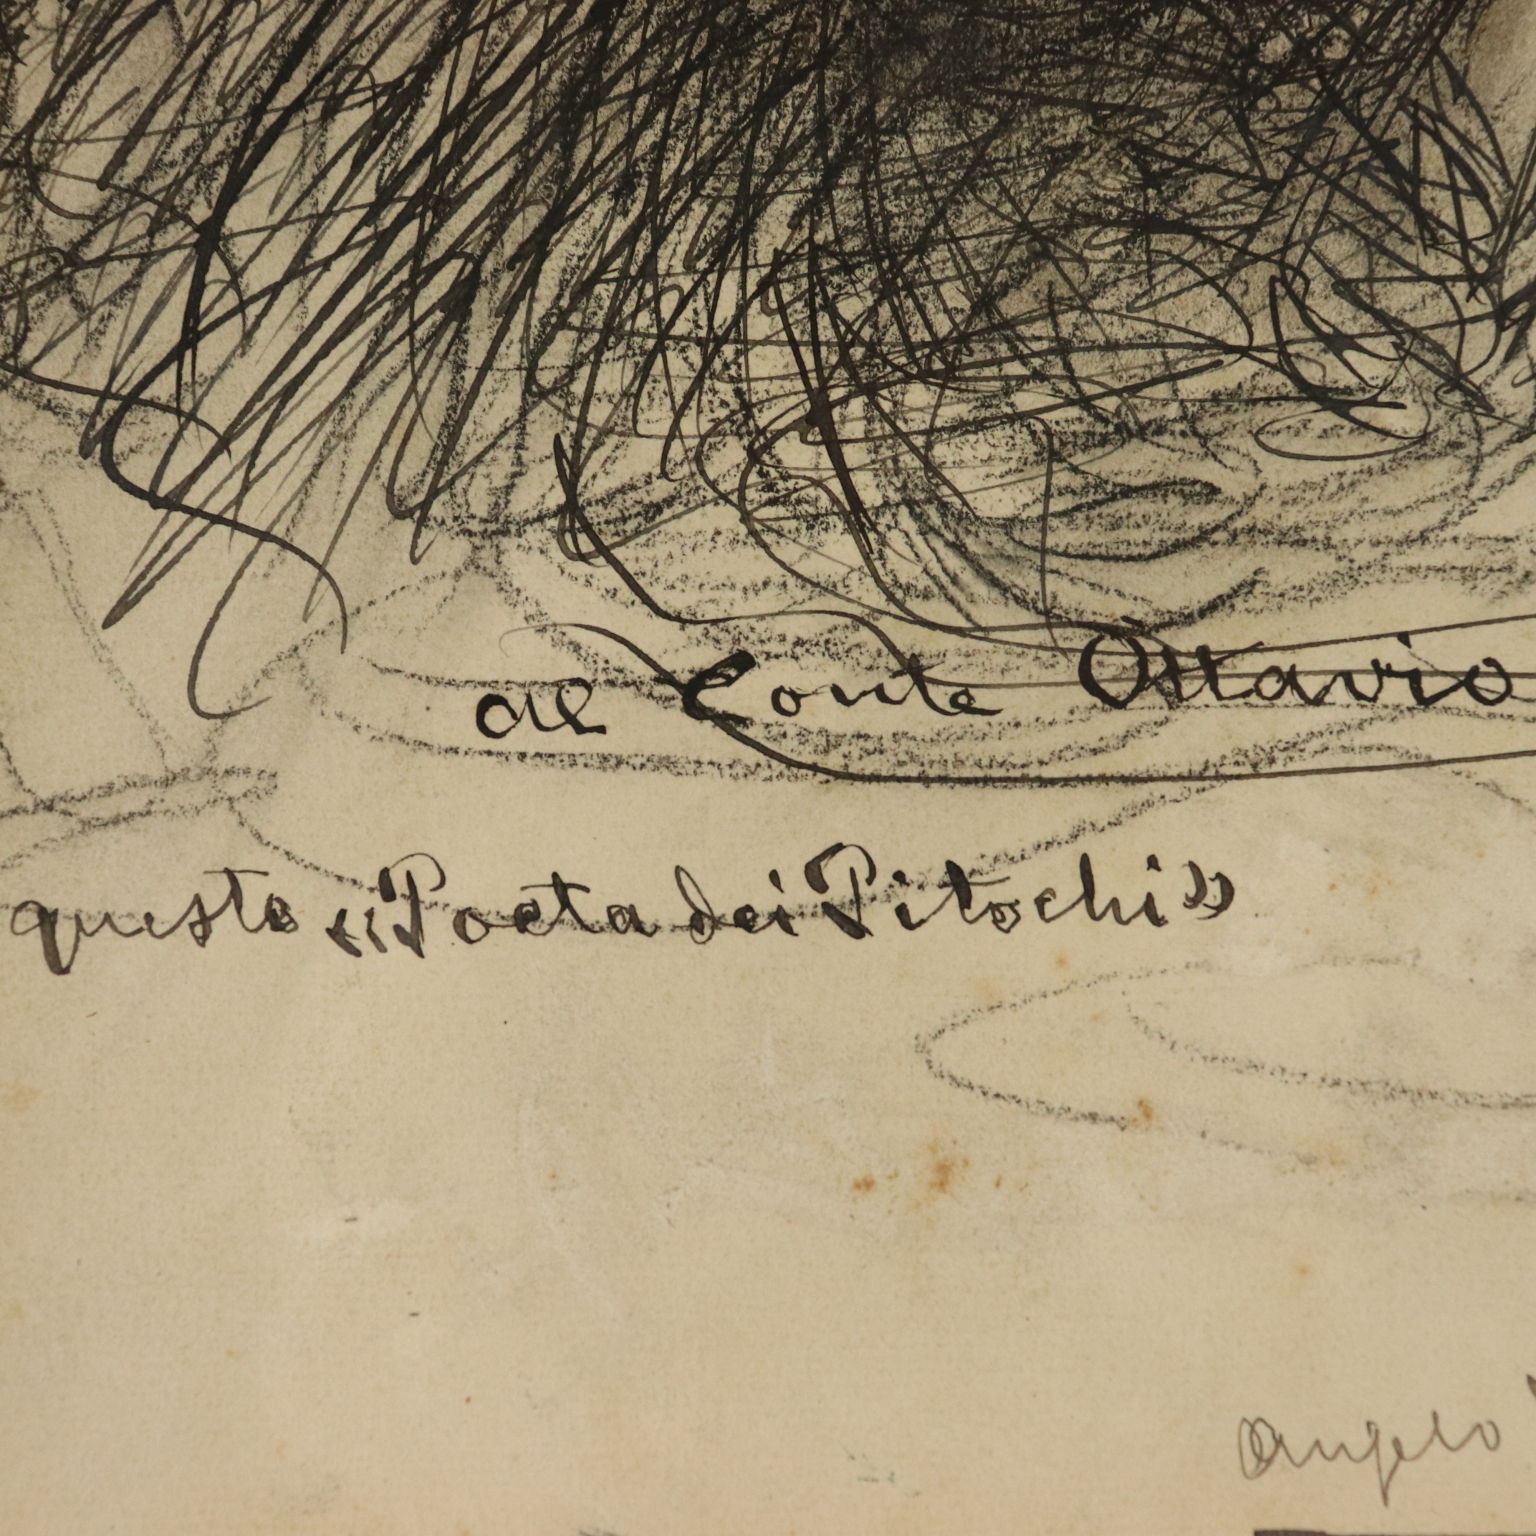 al Conte Ottavio
questo «Poeta dei Pitochi»
Angelo